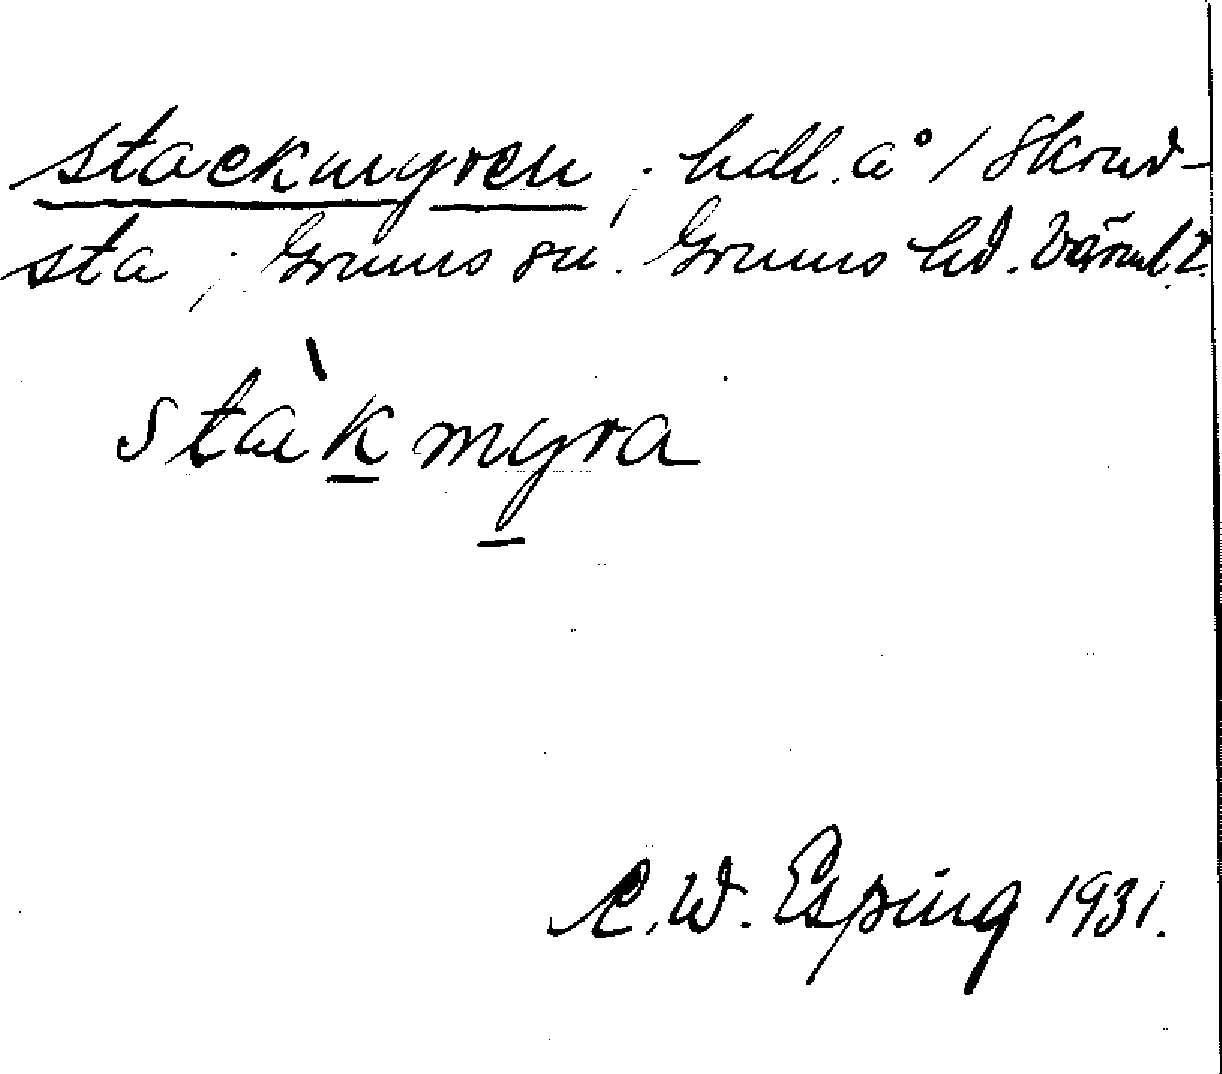 stackmyren; hdl. å / Skruv-
sta; Grums sn. Grums hd. Värml.
stàkmyra
C. W. Esping 1931.